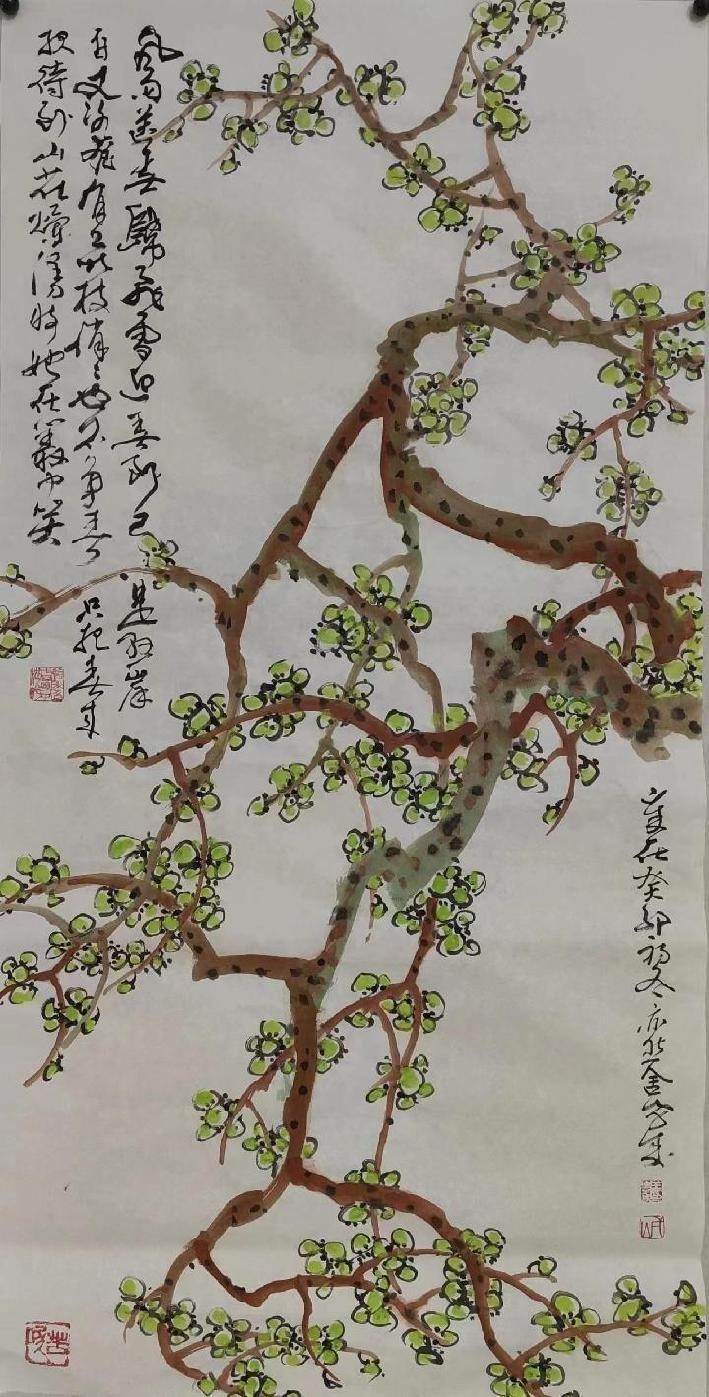 風雨送春歸飛雪迎春到已是悬崖
百丈冰犹有花枝俏俏也不争春只把春来
报待到山花爛漫时她在叢中笑
岁在癸卯初冬